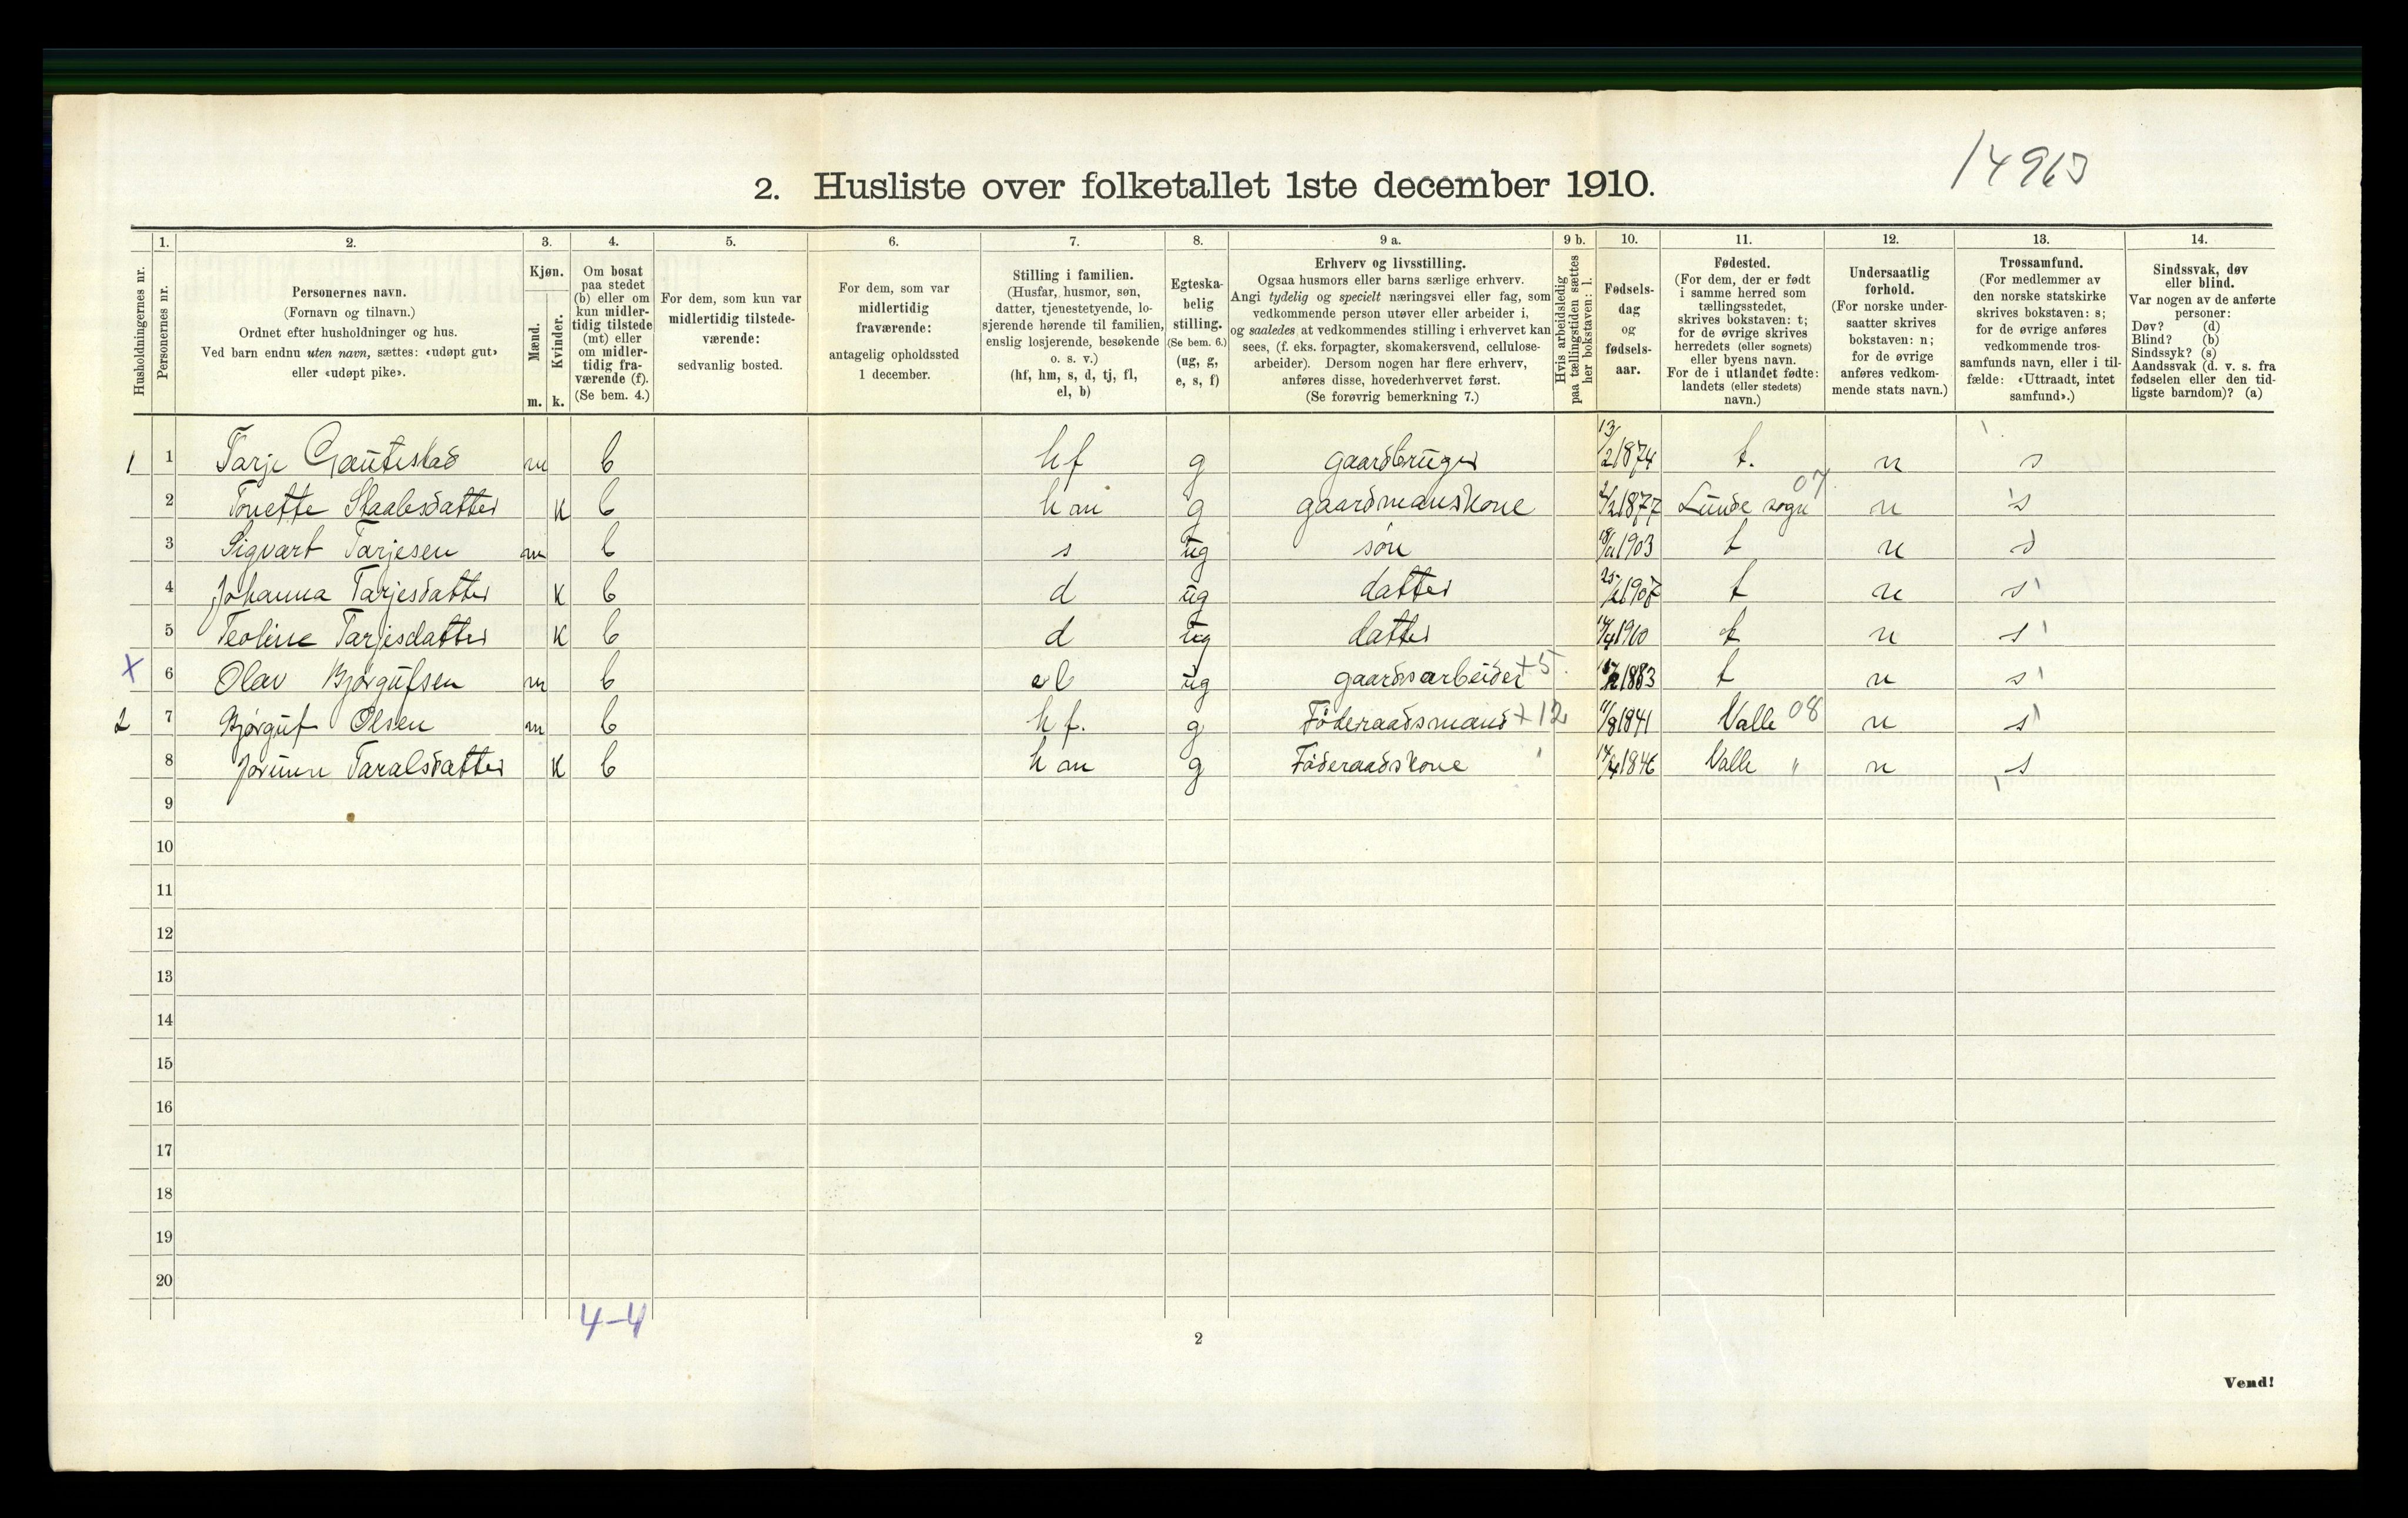 14963
2. Husliste over folketallet 1ste december 1910.
Husholdningernes nr.
1. Personernes nr.
2. Personernes navn.
(Fornavn og tilnavn.)
Ordnet efter husholdninger og hus.
Ved barn endnu uten navn, sættes: «udøpt gut»
eller «udøpt pike».
3. Kjøn.
Mænd. m.
Kvinder. k.
4. Om bosat
paa stedet
(b) eller om
kun midler-
tidig tilstede
(mt) eller
om midler-
tidig fra-
værende (f).
(Se bem. 4.)
5. For dem, som kun var
midlertidig tilstede-
værende:
sedvanlig bosted.
6. For dem, som var
midlertidig
fraværende:
antagelig opholdssted
1 december.
7. Stilling i familien.
(Husfar, husmor, søn,
datter, tjenestetyende, lo-
sjerende hørende til familien,
enslig losjerende, besøkende
o. s. v.)
(hf, hm, s, d, tj, fl,
el, b)
8. Egteska-
belig
stilling.
(Se bem. 6.)
(ug, g,
e, s, f)
9 a. Erhverv og livsstilling.
Ogsaa husmors eller barns særlige erhverv.
Angi tydelig og specielt næringsvei eller fag, som
vedkommende person utøver eller arbeider i,
og saaledes at vedkommendes stilling i erhvervet kan
sees, (f. eks. forpagter, skomakersvend, cellulose-
arbeider). Dersom nogen har flere erhverv,
anføres disse, hovederhvervet først.
(Se forøvrig bemerkning 7.)
9 b. Hvis arbeidsledig
paa tællingstiden sættes
her bokstaven: l.
10. Fødsels-
dag
og
fødsels-
aar.
11. Fødested.
(For dem, der er født
i samme herred som
tællingsstedet,
skrives bokstaven: t;
for de øvrige skrives
herredets (eller sognets)
eller byens navn.
For de i utlandet fødte:
landets (eller stedets)
navn.)
12. Undersaatlig
forhold.
(For norske under-
saatter skrives
bokstaven: n;
for de øvrige
anføres vedkom-
mende stats navn.)
13. Trossamfund.
(For medlemmer av
den norske statskirke
skrives bokstaven: s;
for de øvrige anføres
vedkommende tros-
samfunds navn, eller i til-
fælde: «Uttraadt, intet
samfund».)
14. Sindssvak, døv
eller blind.
Var nogen av de anførte
personer:
Døv? (d)
Blind? (b)
Sindssyk? (s)
Aandssvak (d. v. s. fra
fødselen eller den tid-
ligste barndom)? (a)
1 1 Tarje Gautestad m b hf g gaardbruger 13/2 1874 t. n s
2 Tonette Staalesdatter k b hm g gaardmanskone 1877 Lunde sogn 07 n s
3 Sigvart Tarjesen m b s ug søn 1903 t n s
4 Johanna Tarjesdatter k b d ug datter 1907 t n s
5 Teoline Tarjesdatter k b d ug datter 1910 t n s
X 6 Olav Bjørgufsen m b el ug gaardsarbeider +5. 1883 t n s
2 7 Bjørguf Olsen m b hf. g Føderaadsmand +12 11/8 1841 Valle 08 n s
8 Jorunn Taralsdatter k b hm g Føderaadskone " 14/4 1846 Valle " n s
9
10
11
12
13
14
15
16
17
18
19
20
4-4
2
Vend!